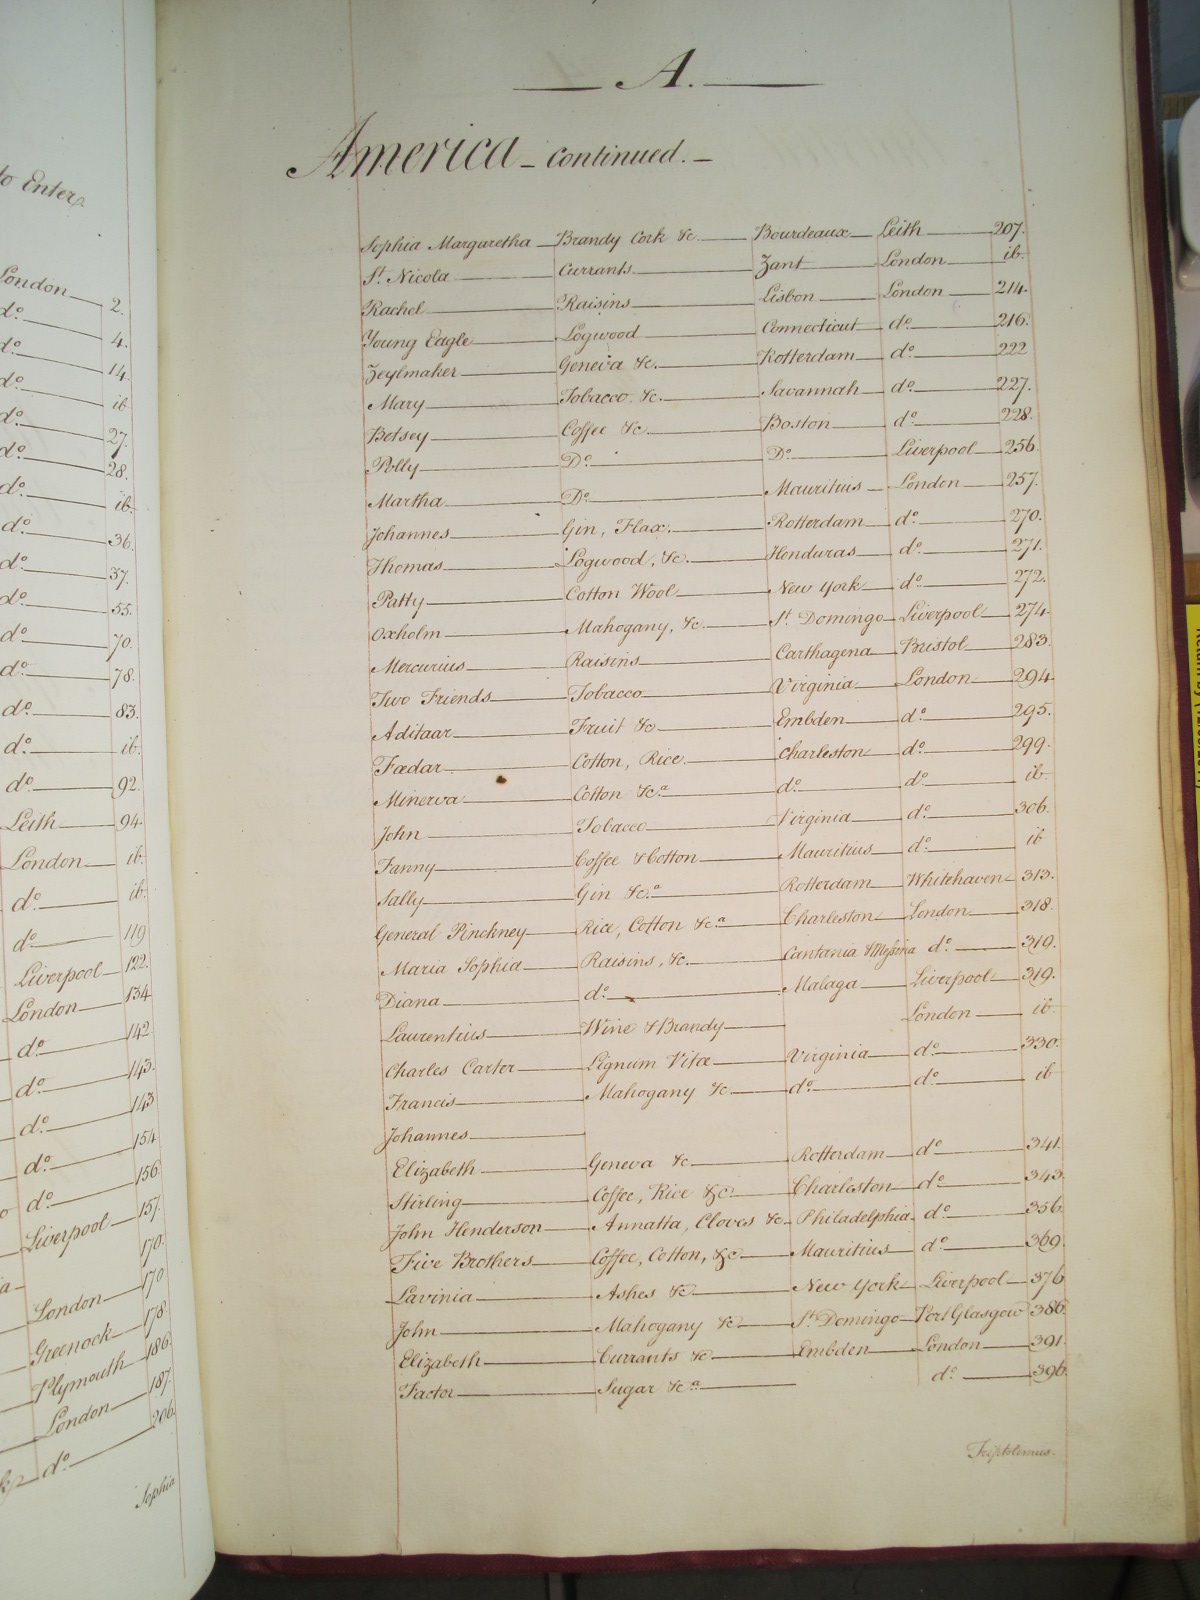 to Enter
London 2.
do. 4.
do. 14.
do. ib
do. 27.
do. 28.
do. ib.
do. 36.
do. 37.
do. 55.
do. 70.
do. 78.
do. 83.
do. ib.
do. 92.
Leith 94.
London ib.
do. ib.
do. 119
Liverpool 122.
London 134
do. 142
do. 143.
do. 143
do. 154
do. 156.
Liverpool 157.
170.
London 170
Greenock 178.
Plymouth 186.
London 187.
do. 206.
Sophia
— A. —
America — continued. —
Sophia Margaretha Brandy Cork &c. Bourdeaux Leith 207.
St. Nicola Currants Zant London ib.
Rachel Raisins Lisbon London 214.
Young Eagle Logwood Connecticut do. 216.
Zeylmaker Geneva &c. Rotterdam do. 222
Mary Tobacco &c. Savannah do. 227.
Betsey Coffee &c. Boston do. 228.
Polly Do. Do. Liverpool 256.
Martha Do. Mauritius London 257.
Johannes Gin, Flax. Rotterdam do. 270.
Thomas Logwood, &c. Honduras do. 271.
Patty Cotton Wool New York do. 272.
Oxholm Mahogany, &c. St. Domingo Liverpool 274.
Mercurius Raisins Carthagena Bristol 283.
Two Friends Tobacco Virginia London 294.
Aditaar Fruit &c Embden do. 295.
Fœdar Cotton, Rice Charleston do. 299.
Minerva Cotton &ca. do. do. ib.
John Tobacco Virginia do. 306.
Fanny Coffee & Cotton Mauritius do. ib
Sally Gin &ca. Rotterdam Whitehaven 313.
General Pinckney Rice, Cotton &ca. Charleston London 318.
Maria Sophia Raisins, &c. Cantania & Messina do. 319.
Diana do. Malaga Liverpool 319.
Laurentius Wine & Brandy London ib.
Charles Carter Lignum Vitæ Virginia do. 330.
Francis Mahogany &c do. do. ib
Johannes
Elizabeth Geneva &c Rotterdam do. 341.
Stirling Coffee, Rice &c. Charleston do. 343.
John Henderson Annatta, Cloves &c Philadelphia do. 356.
Five Brothers Coffee, Cotton, &c Mauritius do. 369.
Lavinia Ashes &c New York Liverpool 376
John Mahogany &c St. Domingo Port Glasgow 386.
Elizabeth Currants &c Embden London 391.
Factor Sugar &ca. do. 396.
Triptolemus.